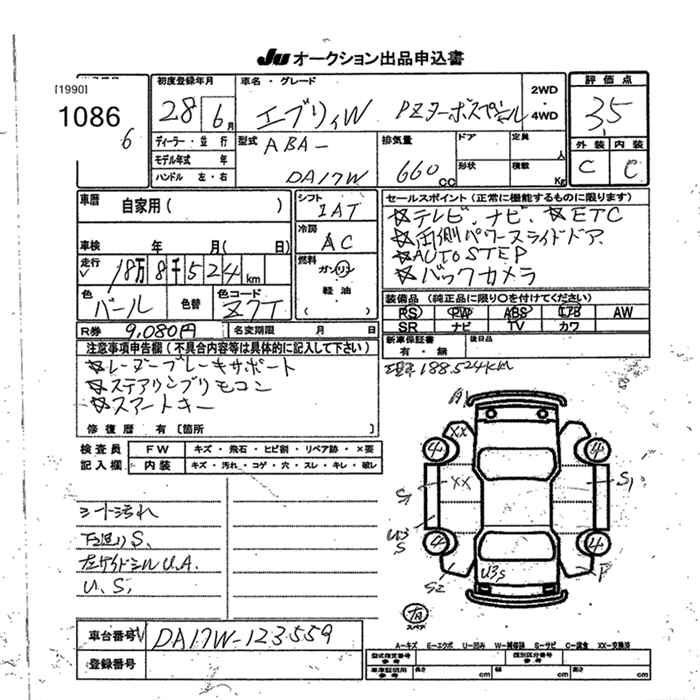 JU オークション出品申込書
[1990]
1086
6
初度登録年月
28 6月
車名・グレード
エブリィW PZターボスペシャル
2WD
・
4WD
評価点
3,5
外装 内装
C C
ディーラー・並行
モデル年式 年
ハンドル 左・右
型式
ABA-
DA17W
排気量
660 CC
ドア
形状
定員
人
積載
Kg
車歴
自家用( )
車検 年 月( 日)
走行
18万8千524km
色
パール
色替
色コード
Z7T
シフト
IAT
冷房
AC
燃料
ガソリン
・
軽油
( )
セールスポイント(正常に機能するものに限ります)
☆テレビ、ナビ、☆ETC
☆両側パワースライドドア
☆AUTO STEP
☆バックカメラ
装備品(純正品に限り○を付けてください)
PS PW ABS エアB AW
SR ナビ TV カワ
新車保証書
有・無
後日品
R券 9,080円
名変期限 月 日
注意事項申告欄(不具合内容等は具体的に記入して下さい)
☆レーダーブレーキサポート
☆ステアリングリモコン
☆スマートキー
修復歴 有〔箇所 〕
現車188,524KM
検査員
記入欄
FW キズ・飛石・ヒビ割・リペア跡・×要
内装 キズ・汚れ・コゲ・穴・スレ・キレ・破レ
シート汚れ
下廻りS、
左サイドシルU.A.
U、S,
A1
XX
4
4
XX
S1
S1
U3
S
4
4
S2
U3S
P
有
スペア
車台番号 DA17W-123559
登録番号
A-キズ E-エクボ U-凹み W-補修跡 S-サビ C-腐食 XX-交換済
型式指定番号
参考
類別区分番号
参考
車庫証明用
参考
長さ cm
幅 cm
高さ cm